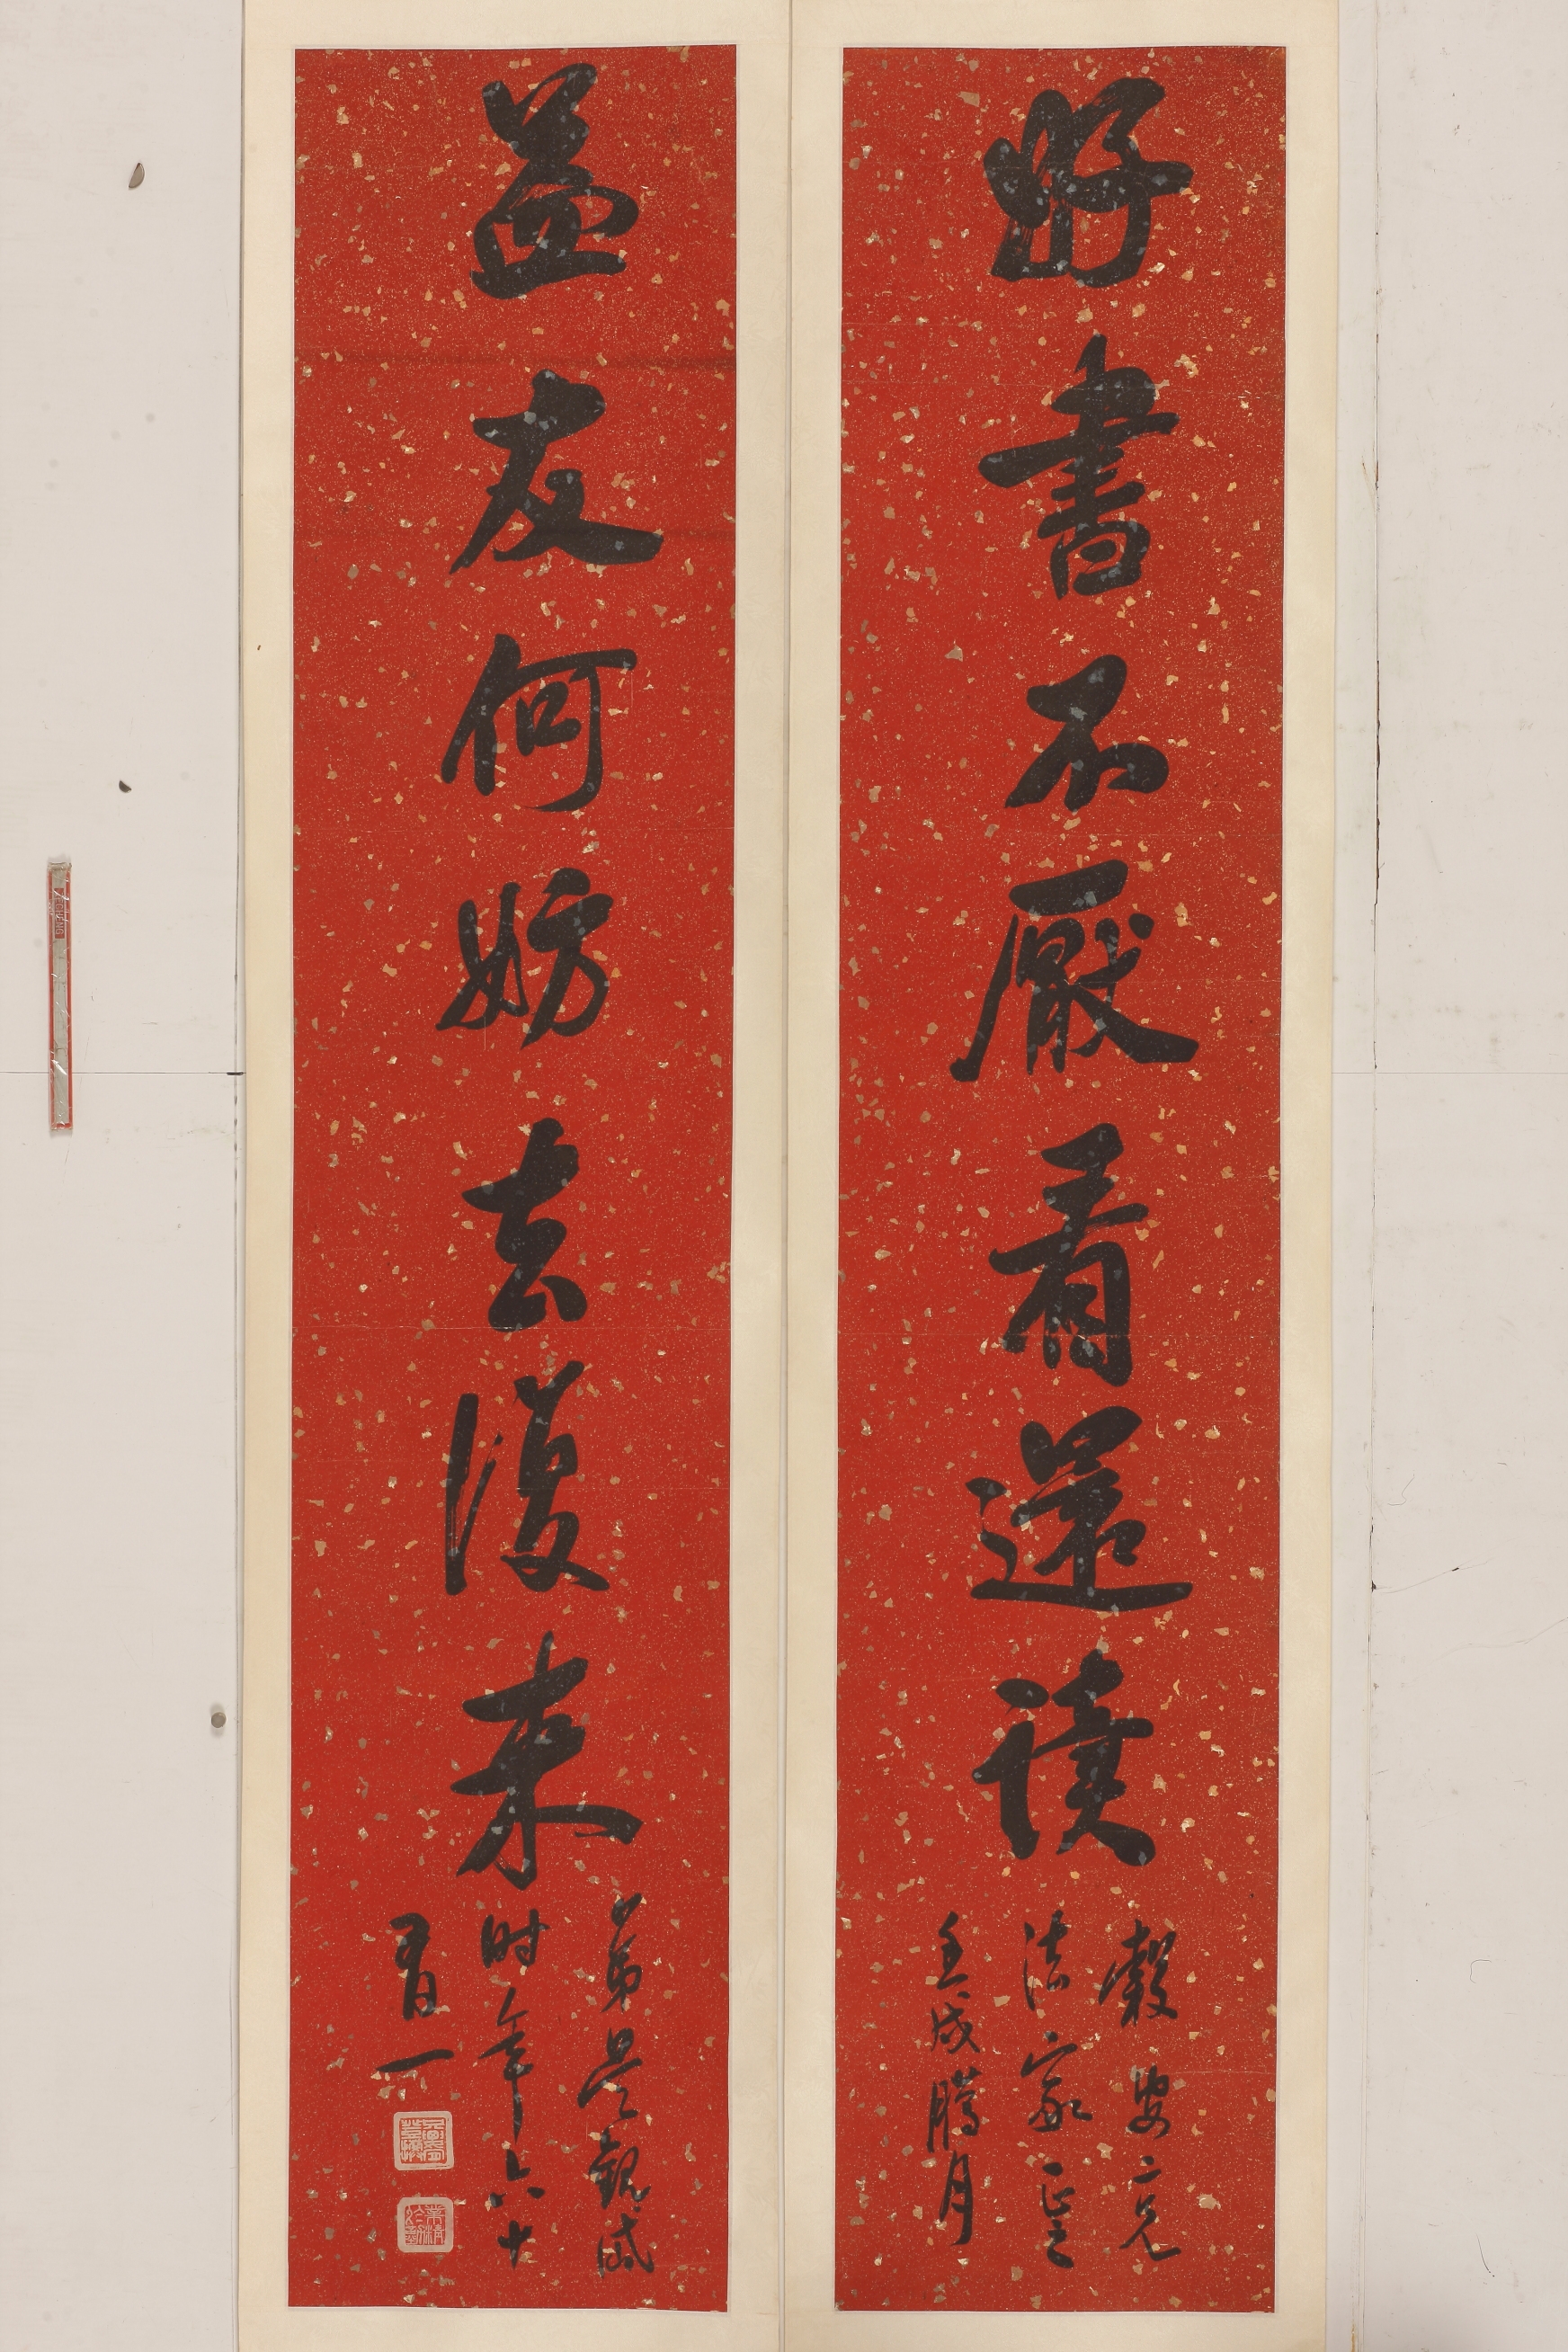 好書不厭看還讀
穀安二兄
法家正之
壬戌臘月
益友何妨去復來
弟吳觀岱
時年六十
有一